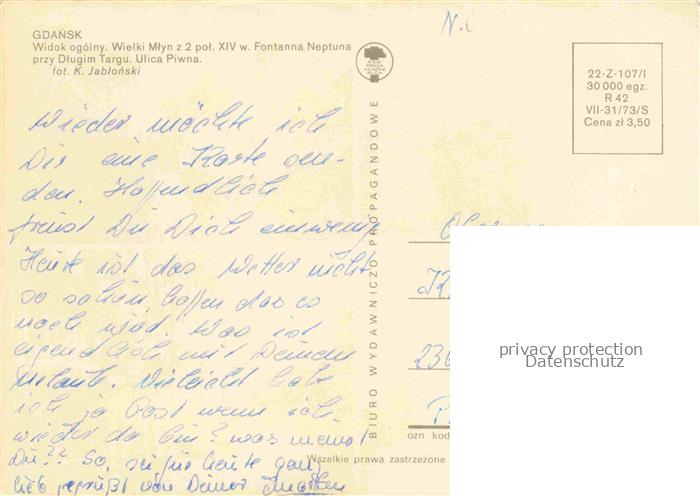 N.
GDAŃSK
Widok ogólny. Wielki Młyn z 2 poł. XIV w. Fontanna Neptuna
przy Długim Targu. Ulica Piwna.
fot. K. Jabłoński
22-Z-107/I
30 000 egz.
R 42
VII-31/73/S
Cena zł 3,50
Wieder möchte ich
Dir eine Karte sen-
den. Hoffendlich
freust Du Dich
Heute ist das Wetter nicht
so schön, hoffen das es
noch wird. Was ist
eigendlich mit Deinem
Urlaub. Vieleicht hab
ich ja Post wenn ich
wieder da bin? was meinst
Du?? So, sei für heute ganz
lieb gegrüßt von Deiner
BIURO WYDAWNICZO PROPAGANDOWE
236
privacy protection
Datenschutz
ozn. kod
Wszelkie prawa zastrzeżone